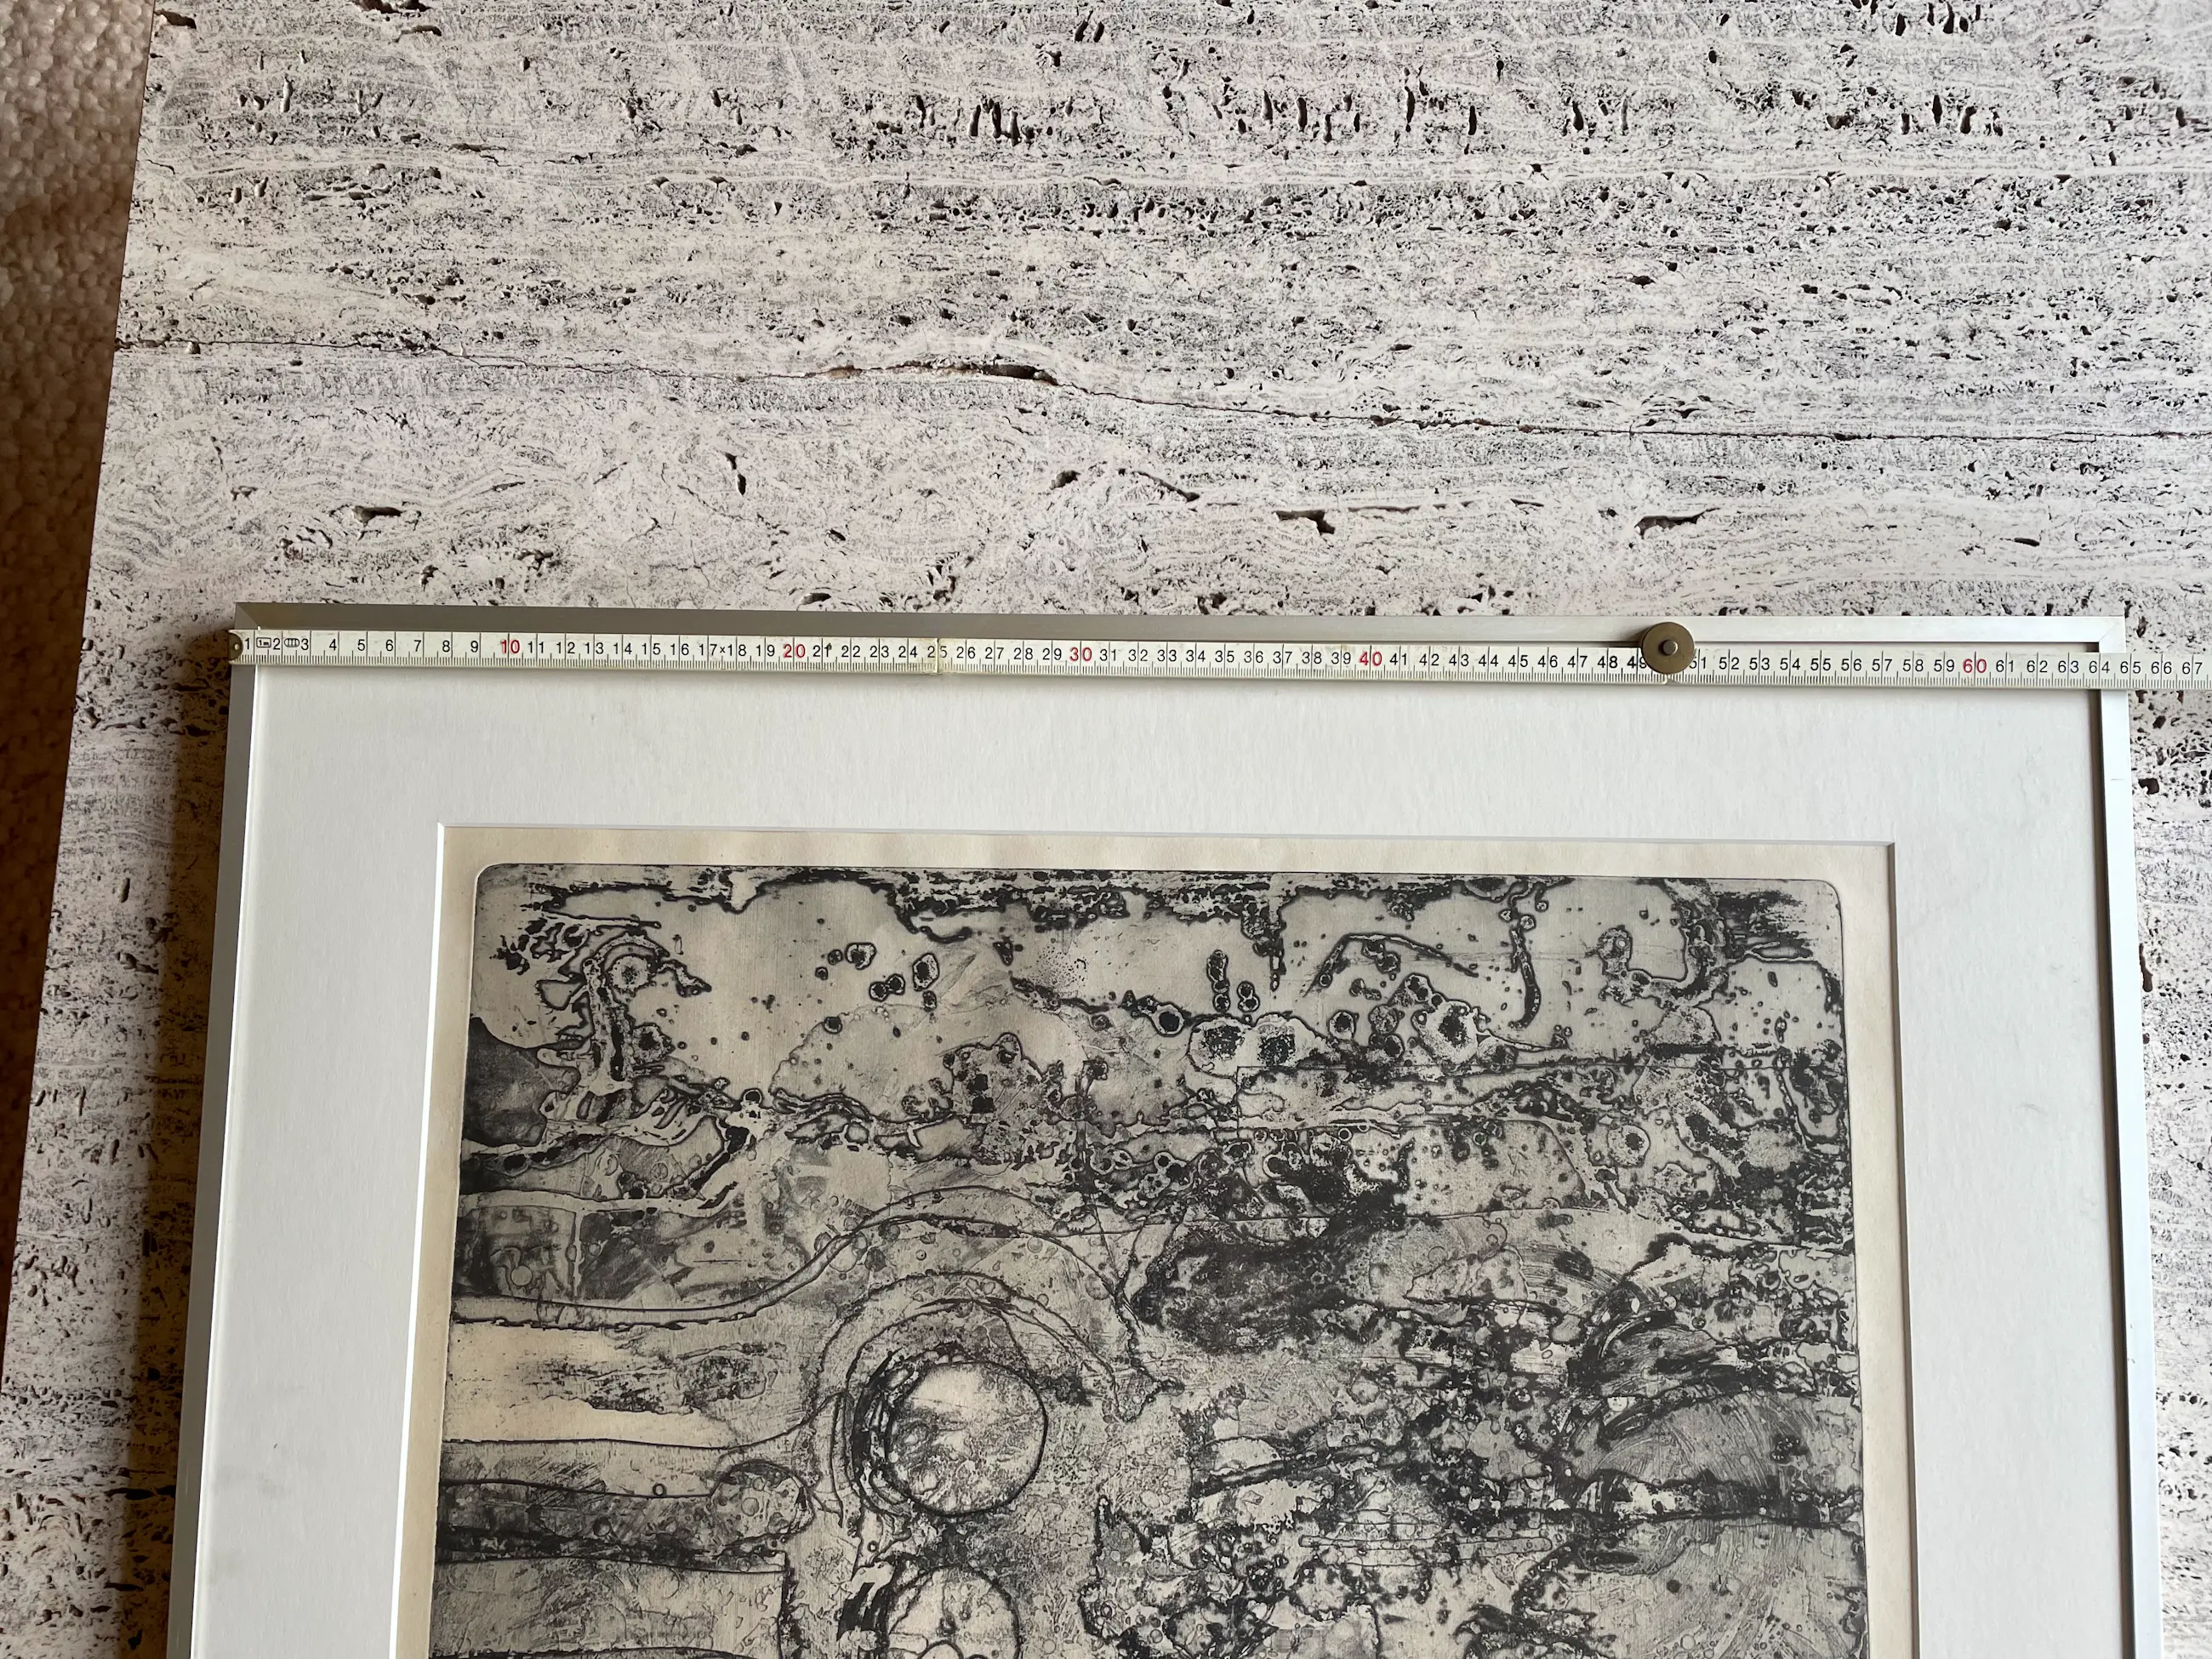 1 1m 2 3 4 5 6 7 8 9 10 11 12 13 14 15 16 17 × 18 19 20 21 22 23 24 25 26 27 28 29 30 31 32 33 34 35 36 37 38 39 40 41 42 43 44 45 46 47 48 49 51 52 53 54 55 56 57 58 59 60 61 62 63 64 65 66 67